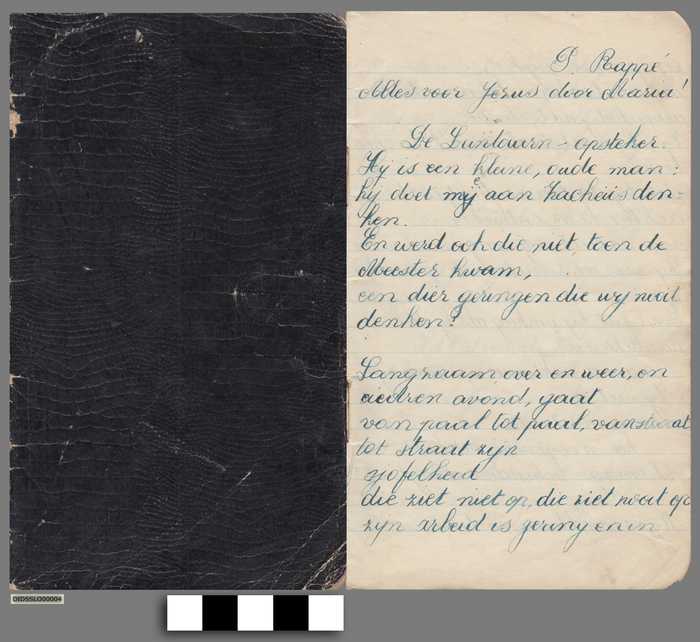 P. Rappé
Alles voor Jezus door Maria!
De Lantaarn-opsteker.
Hij is een kleine, oude man:
hij doet mij aan Zacheüs den-
ken.
En werd ook die niet, toen de
Meester kwam,
een dier geringen die wij nooit
denken?
Langzaam over en weer, en
iederen avond, gaat
van paal tot paal, van straat
tot straat zijn
sjofelheid
die ziet niet op, die ziet nooit op
zijn arbeid is gering en in
OIDSSLO00004